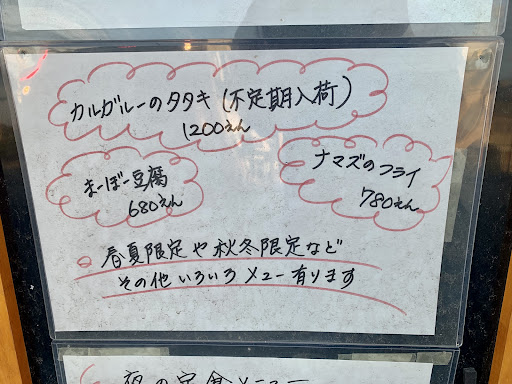 カルガルーのタタキ(不定期入荷)
1200えん
まーぼー豆腐
680えん
ナマズのフライ
780えん
春夏限定や秋冬限定など
その他いろいろメニュー有ります
夜の定食メニュー